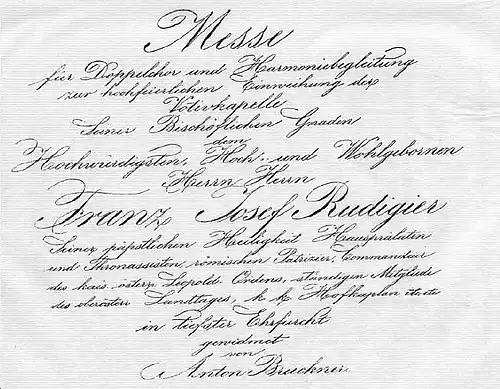 Messe
für Doppelchor und Harmoniebegleitung
zur hochfeierlichen Einweihung der
Votivkapelle
Seiner Bischöflichen Gnaden
dem
Hochwürdigsten, Hoch- und Wohlgebornen
Herrn Herrn
Franz Josef Rudigier
Seiner päpstlichen Heiligkeit Hausprälaten
und Thronassisten, römischen Patrizier, Commandeur
des kais. österr. Leopold-Ordens, ständigen Mitgliede
des oberösterr Landtages, k k Hofkaplan etc etc
in tiefster Ehrfurcht
gewidmet
von
Anton Bruckner